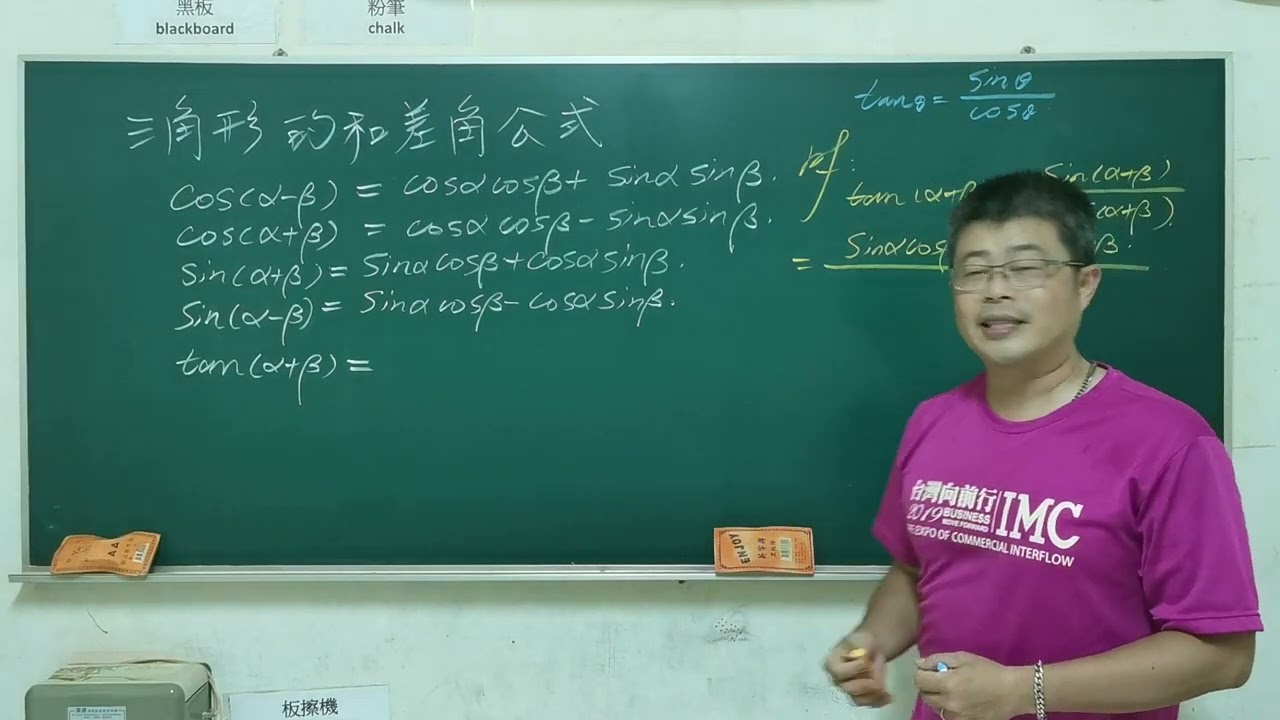 黑板
blackboard
粉筆
chalk
三角形的和差角公式
cos(α-β) = cosαcosβ + sinαsinβ.
cos(α+β) = cosαcosβ - sinαsinβ.
sin(α+β) = sinαcosβ + cosαsinβ.
sin(α-β) = sinαcosβ - cosαsinβ.
tan(α+β) =
tanθ = sinθ
cosθ
pf:
tan(α+β sin(α+β)
(α+β).
= sinαcos β.
台灣向前行 IMC
2019 BUSINESS
MOVE FORWARD
EXPO OF COMMERCIAL INTERFLOW
ENJOY
板擦機